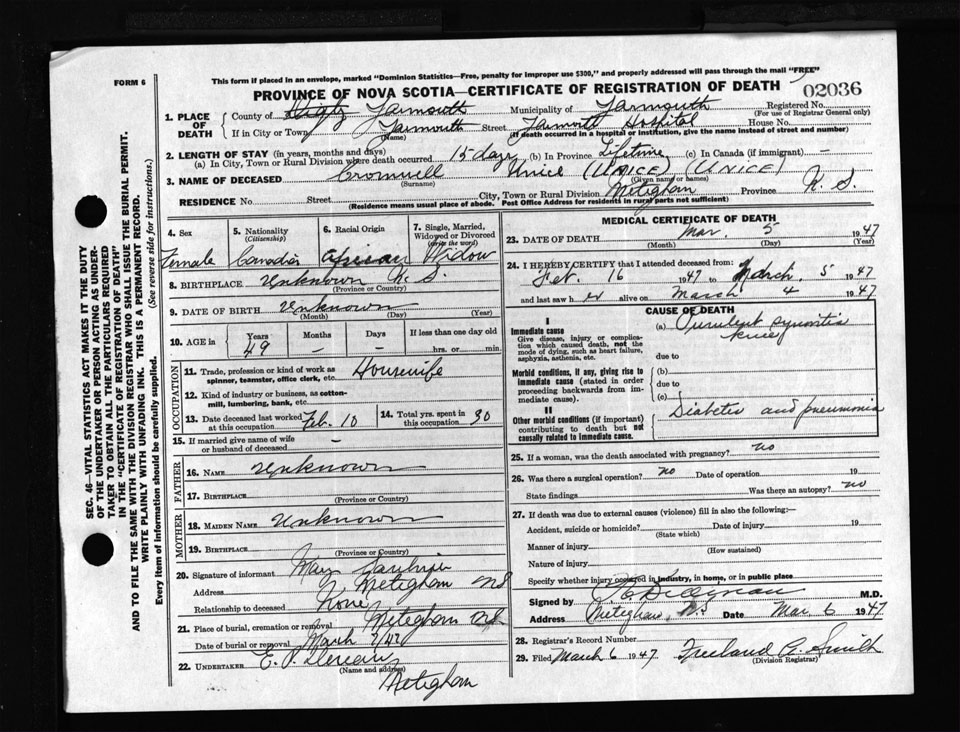 This form if placed in an envelope, marked "Dominion Statistics—Free, penalty for improper use $300," and properly addressed will pass through the mail "FREE"
FORM 6
PROVINCE OF NOVA SCOTIA—CERTIFICATE OF REGISTRATION OF DEATH
02036
1. PLACE OF DEATH
County of Digby Yarmouth Municipality of Yarmouth Registered No.
(For use of Registrar General only)
If in City or Town Yarmouth Street Yarmouth Hospital House No.
(Name) (If death occurred in a hospital or institution, give the name instead of street and number)
2. LENGTH OF STAY (in years, months and days)
(a) In City, Town or Rural Division where death occurred 15 days (b) In Province Lifetime (c) In Canada (if immigrant) —
3. NAME OF DECEASED Cromwell Unice (UNICE) (UNICE)
(Surname) (Given name or names)
RESIDENCE No. Street City, Town or Rural Division Meteghan Province N. S.
(Residence means usual place of abode. Post Office Address for residents in rural parts not sufficient)
4. Sex
Female
5. Nationality
(Citizenship)
Canadian
6. Racial Origin
African
7. Single, Married, Widowed or Divorced
(write the word)
Widow
8. BIRTHPLACE Unknown N. S.
(Province or Country)
9. DATE OF BIRTH Unknown
(Month) (Day) (Year)
10. AGE in
Years Months Days If less than one day old
49 — — hrs. or min.
OCCUPATION
11. Trade, profession or kind of work as spinner, teamster, office clerk, etc. Housewife
12. Kind of industry or business, as cotton-mill, lumbering, bank, etc.
13. Date deceased last worked at this occupation Feb. 10
14. Total yrs. spent in this occupation 30
15. If married give name of wife or husband of deceased —
FATHER
16. NAME Unknown
17. BIRTHPLACE
(Province or Country)
MOTHER
18. MAIDEN NAME Unknown
19. BIRTHPLACE
(Province or Country)
20. Signature of informant Mary
Address Meteghan NS
Relationship to deceased None
21. Place of burial, cremation or removal Meteghan NS
Date of burial or removal March 7/47
22. UNDERTAKER E. P.
(Name and address)
Meteghan
MEDICAL CERTIFICATE OF DEATH
23. DATE OF DEATH Mar. 5 1947
(Month) (Day) (Year)
24. I HEREBY CERTIFY that I attended deceased from:
Feb. 16 1947 to March 5 1947
and last saw h er alive on March 4 1947
CAUSE OF DEATH
I
Immediate cause
Give disease, injury or complication which caused death, not the mode of dying, such as heart failure, asphyxia, asthenia, etc.
(a) Purulent synovitis
knee
due to
Morbid conditions, if any, giving rise to immediate cause (stated in order proceeding backwards from immediate cause).
(b)
due to
(c)
II
Other morbid conditions (if important) contributing to death but not causally related to immediate cause.
Diabetes and pneumonia
25. If a woman, was the death associated with pregnancy? no
26. Was there a surgical operation? no Date of operation 19
State findings Was there an autopsy? no
27. If death was due to external causes (violence) fill in also the following:—
Accident, suicide or homicide? Date of injury 19
(State which)
Manner of injury
(How sustained)
Nature of injury
Specify whether injury occurred in industry, in home, or in public place
Signed by M.D.
Address Meteghan, N.S. Date Mar. 6 1947
28. Registrar's Record Number
29. Filed March 6 1947 Freeland A. Smith
(Division Registrar)
SEC. 46—VITAL STATISTICS ACT MAKES IT THE DUTY
OF THE UNDERTAKER OR PERSON ACTING AS UNDER-
TAKER TO OBTAIN ALL THE PARTICULARS REQUIRED
IN THE "CERTIFICATE OF REGISTRATION OF DEATH"
AND TO FILE THE SAME WITH THE DIVISION REGISTRAR WHO SHALL ISSUE THE BURIAL PERMIT.
WRITE PLAINLY WITH UNFADING INK. THIS IS A PERMANENT RECORD.
Every item of information should be carefully supplied. (See reverse side for instructions.)